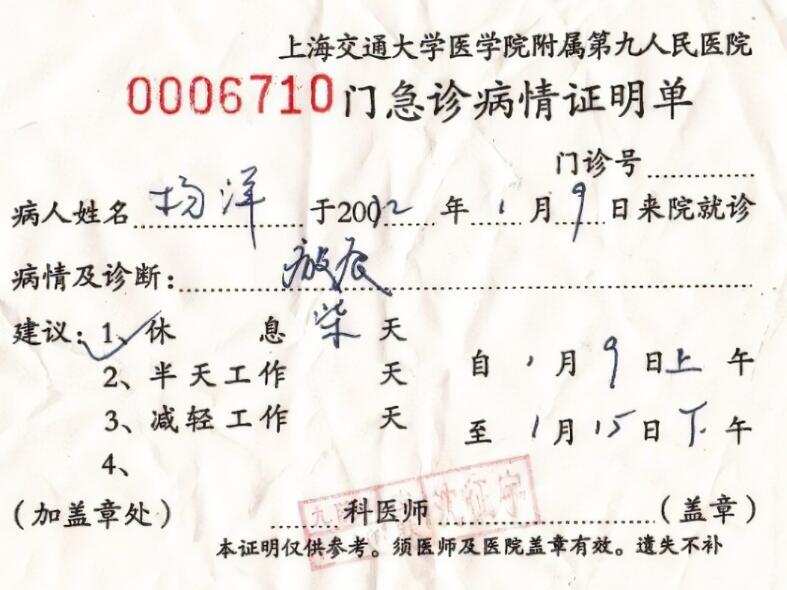 上海交通大学医学院附属第九人民医院
0006710 门急诊病情证明单
门诊号
病人姓名 杨洋 于2002 年 1 月 9 日来院就诊
病情及诊断:
建议: 1、休 息 柒 天
2、半天工作 天 自 1 月 9 日 上 午
3、减轻工作 天 至 1 月 15 日 下 午
4、
(加盖章处) 科医师 (盖章)
本证明仅供参考。须医师及医院盖章有效。遗失不补